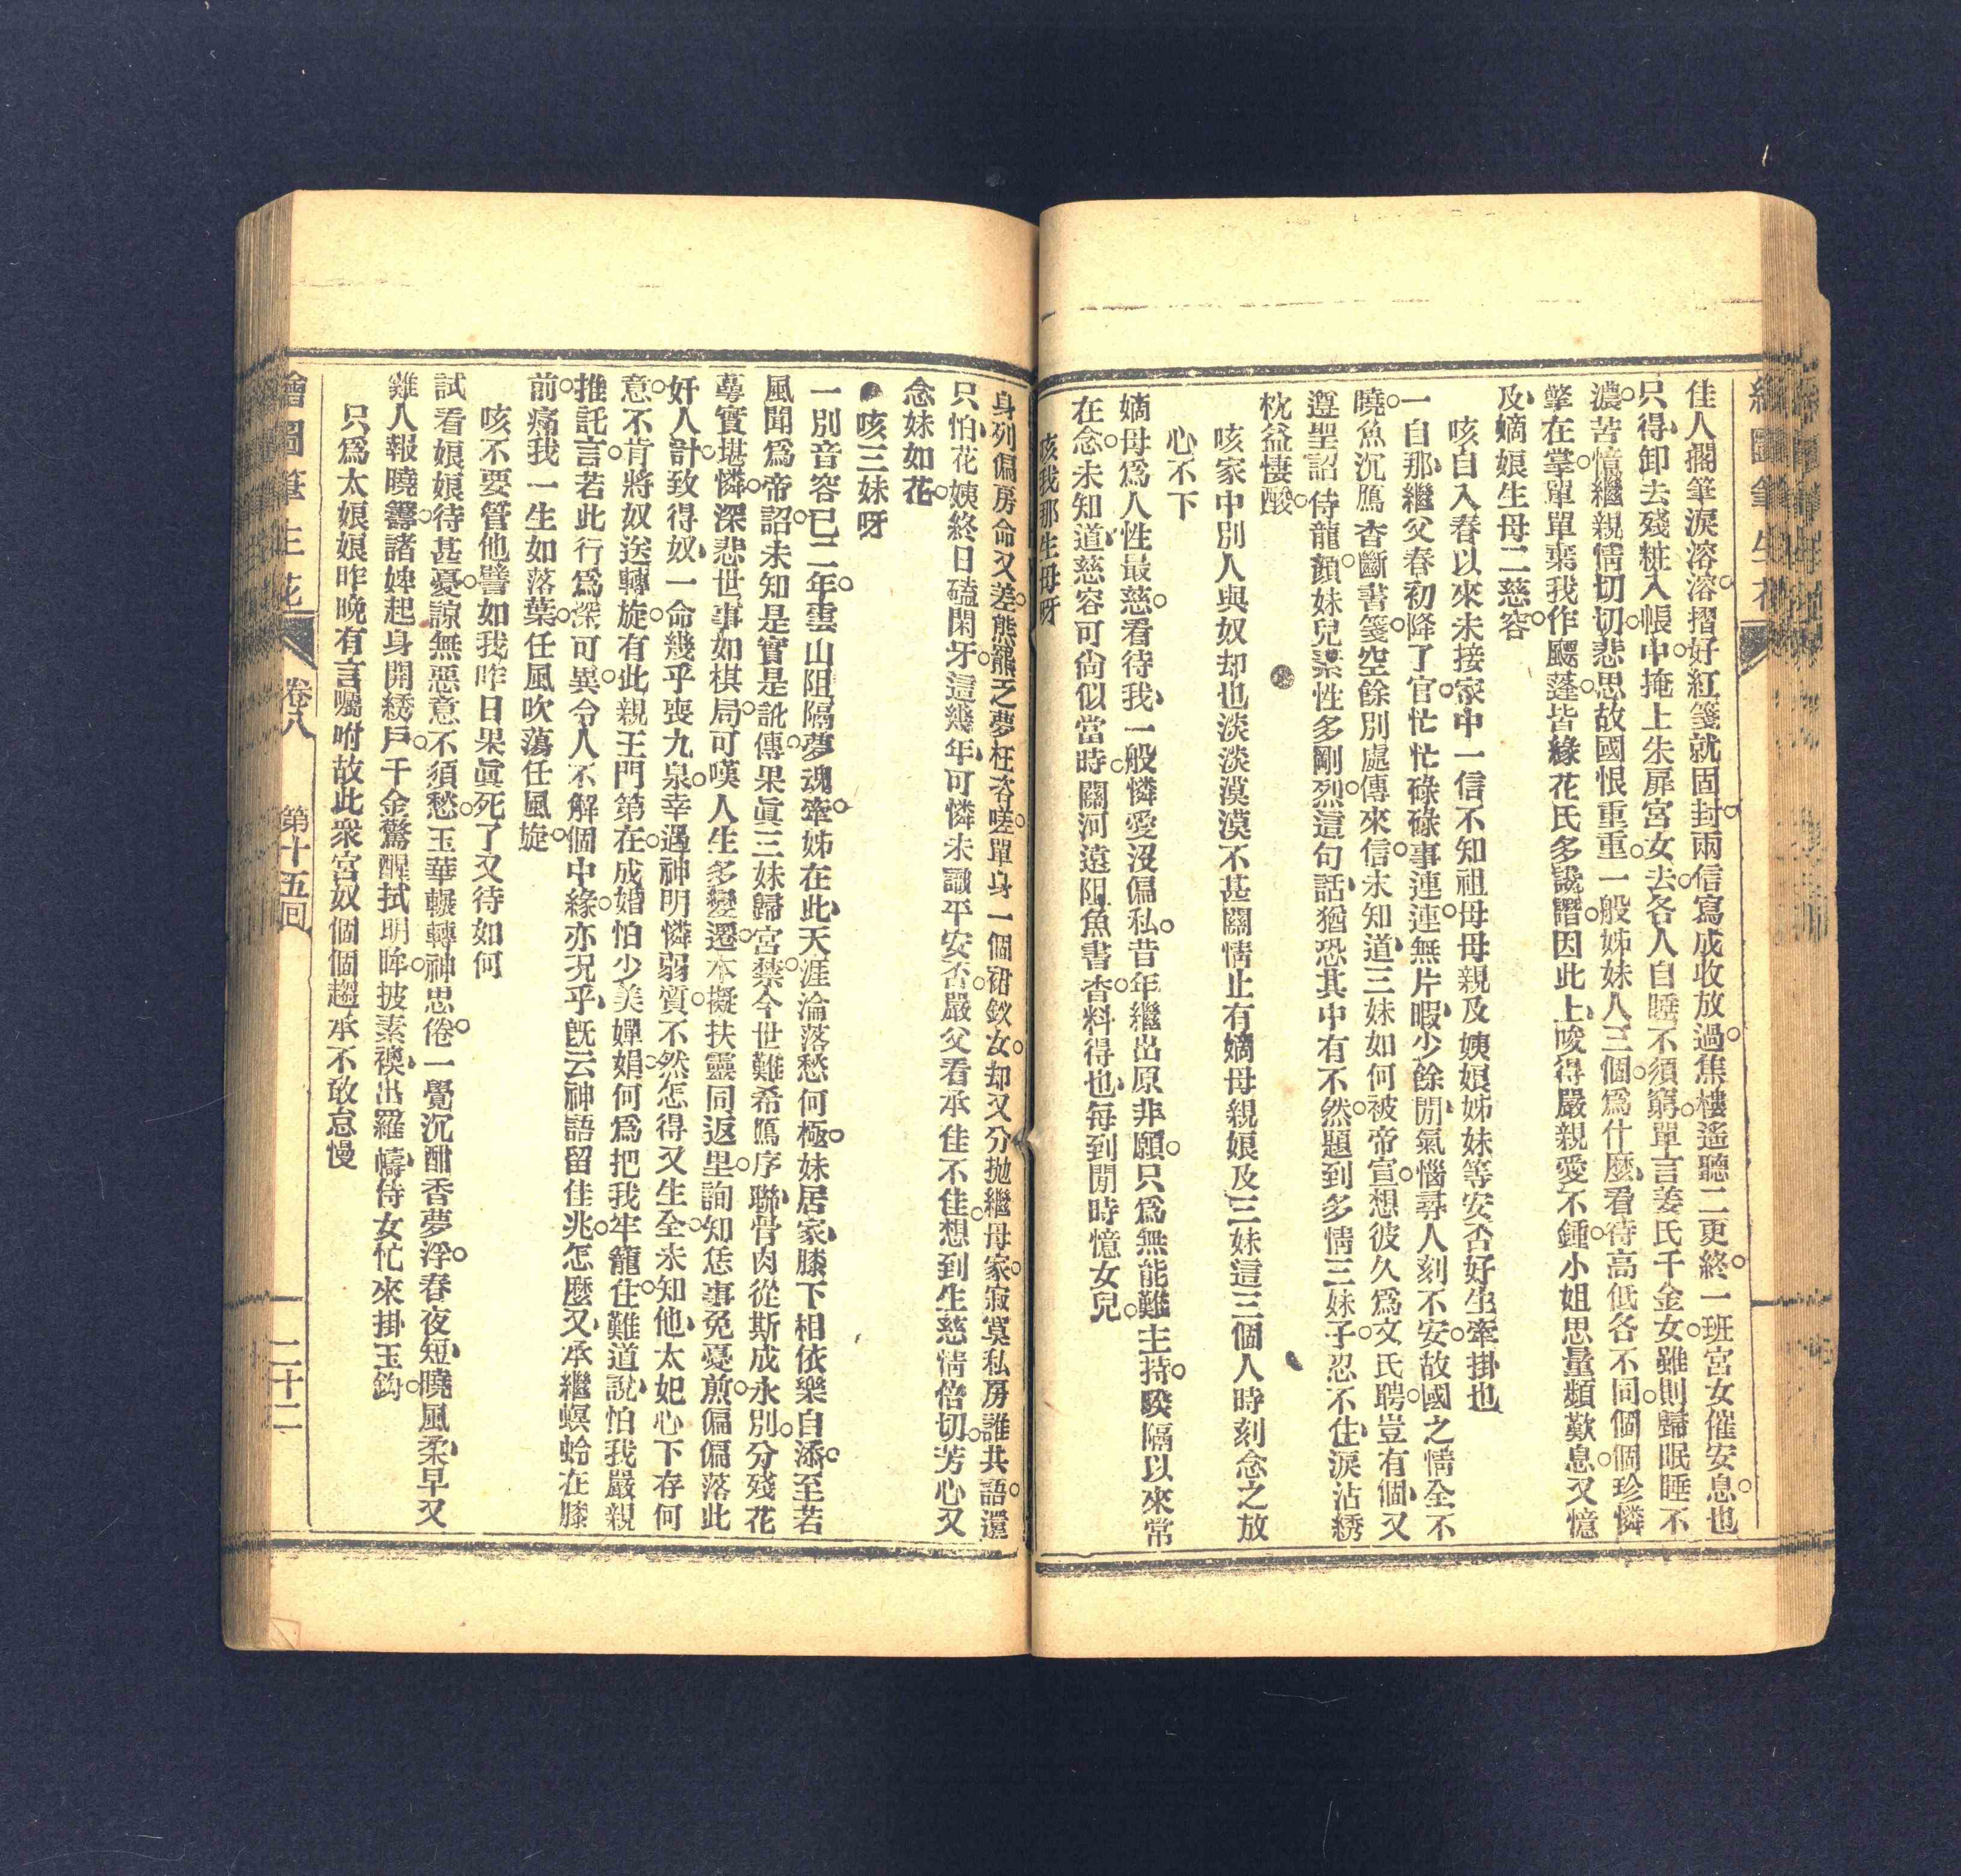 繪圖筆生花
佳人擱筆淚溶溶。摺好紅箋就固封。兩信寫成收放過。焦樓遙聽二更終。一班宮女催安息。也
只得、卸去殘粧入帳中。掩上朱扉宮女去。各人自睡不須窮。單言姜氏千金女。雖則歸眠睡不
濃。苦憶繼親情切切。悲思故國恨重重。一般姊妹人三個。爲什麽、看待高低各不同。個個珍憐
擎在掌。單單棄我作飃蓬。皆緣花氏多讒譖。因此上、唆得嚴親愛不鍾。小姐思量頻歎息。又憶
及、嫡娘生母二慈容。
咳自入春以來未接家中一信不知祖母母親及姨娘姊妹等安否好生牽掛也
一自那、繼父春初降了官。忙忙碌碌事連連。無片暇、少餘閒、氣惱尋人刻不安。故國之情全不
曉。魚沉鴈杳斷書箋。空餘別處傳來信。未知道、三妹如何被帝宣。想彼久爲文氏聘。豈有個、又
遵聖詔侍龍顏。妹兒素性多剛烈。這句話、猶恐其中有不然。題到多情三妹子。忍不住、淚沾綉
枕益悽酸。
咳家中別人與奴却也淡淡漠漠不甚關情止有嫡母親娘及三妹這三個人時刻念之放
心不下
嫡母爲人性最慈。看待我、一般憐愛沒偏私。昔年繼出原非願。只爲無能難主持。睽隔以來常
在念。未知道、慈容可尙似當時。關河遠阻魚書杳。料得也、每到閒時憶女兒。
咳我那生母呀
身列偏房命又差。熊羆乏夢枉咨嗟。單身一個裙釵女。却又分拋繼母家。寂寞私房誰共語。還
只怕、花姨終日磕閑牙。這幾年、可憐未識平安否。嚴父看承佳不佳。想到生慈情倍切。芳心又
念妹如花。
咳三妹呀
一別音容已二年。雲山阻隔夢魂牽。姊在此、天涯淪落愁何極。妹居家、膝下相依樂自添。至若
風聞爲帝詔。未知是實是訛傳。果眞三妹歸宮禁。今世難希鴈序聯。骨肉從斯成永別。分殘花
蕚實堪憐。深悲世事如棋局。可嘆人生多變遷。本擬扶靈同返里。詢知恁事免憂煎。偏偏落此
奸人計。致得奴、一命幾乎喪九泉。幸遇神明憐弱質。不然怎得又生全。未知他、太妃心下存何
意。不肯將奴送轉旋。有此親王門第在。成婚怕少美嬋娟。何爲把我牢籠住。難道說、怕我嚴親
推託言。若此行爲深可異。令人不解個中緣。亦况乎、旣云神語留佳兆。怎麽又、承繼螟蛉在膝
前。痛我一生如落葉。任風吹蕩任風旋。
咳不要管他譬如我昨日果眞死了又待如何
試看娘娘待甚憂。諒無惡意不須愁。玉華輾轉神思倦。一覺沉酣香夢浮。春夜短、曉風柔、早又
雞人報曉籌。諸婢起身開綉戶。千金驚醒拭明眸。披素襖、出羅幬、侍女忙來掛玉鈎。
只爲太娘娘昨晚有言囑咐故此衆宮奴個個趨承不敢怠慢
繪圖筆生花 卷八 第十五回 二十二